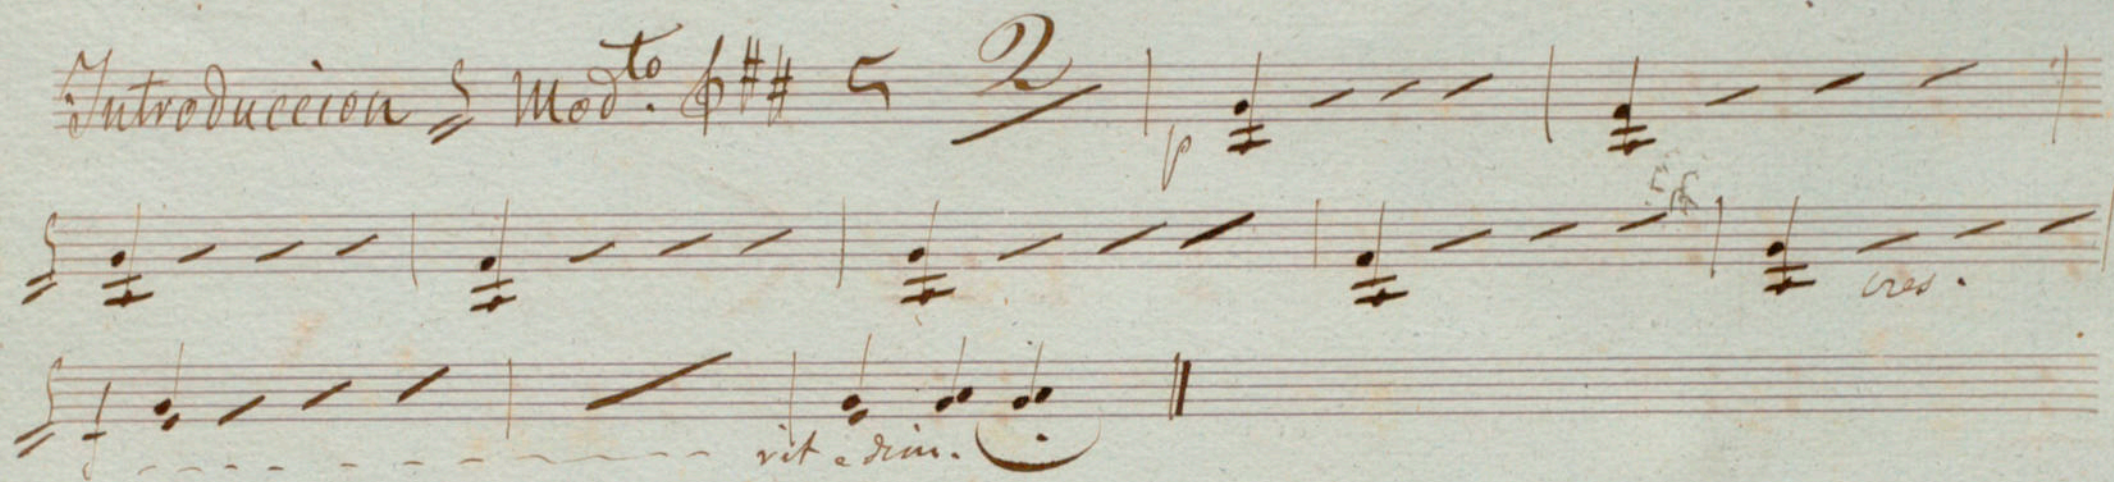 Introduccion Mod.to 2
p
cres.
f rit e dim.